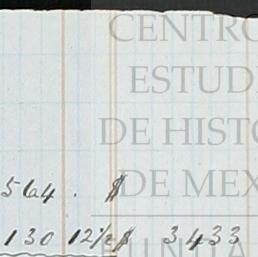 CENTRO
ESTUDI
DE HISTO
DE MEX
564. $
130 12½ $ 3433
FUNDA